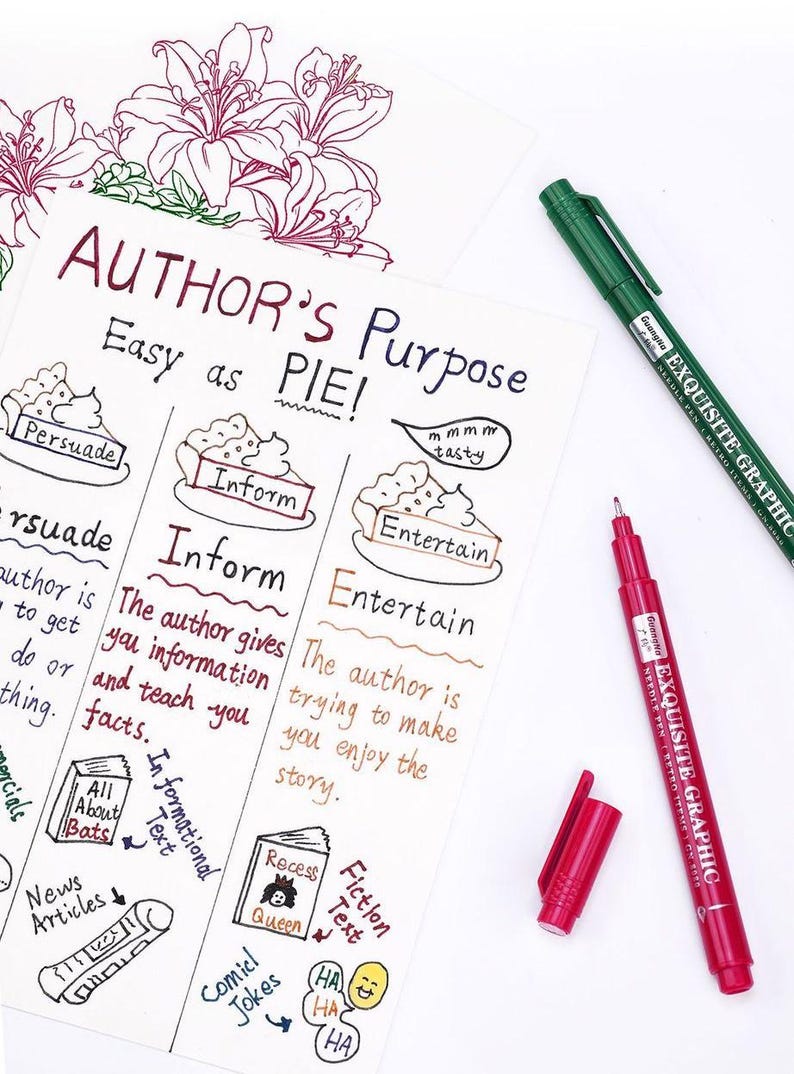 AUTHOR'S Purpose
Easy as PIE!
mmmm
tasty
Persuade
rsuade
author is
to get
do or
thing.
mercials
Inform
Inform
The author gives
you information
and teach you
facts.
All
About
Bats
Informational
Text
News
Articles
Entertain
Entertain
The author is
trying to make
you enjoy the
story.
Recess
Queen
Fiction
Text
Comicl
Jokes
HA
HA
HA
GuangNa
EXQUISITE GRAPHIC
NEEDLE PEN (RETRO ITEMS) GN-8060
GuangNa
EXQUISITE GRAPHIC
NEEDLE PEN (RETRO ITEMS) GN-8060